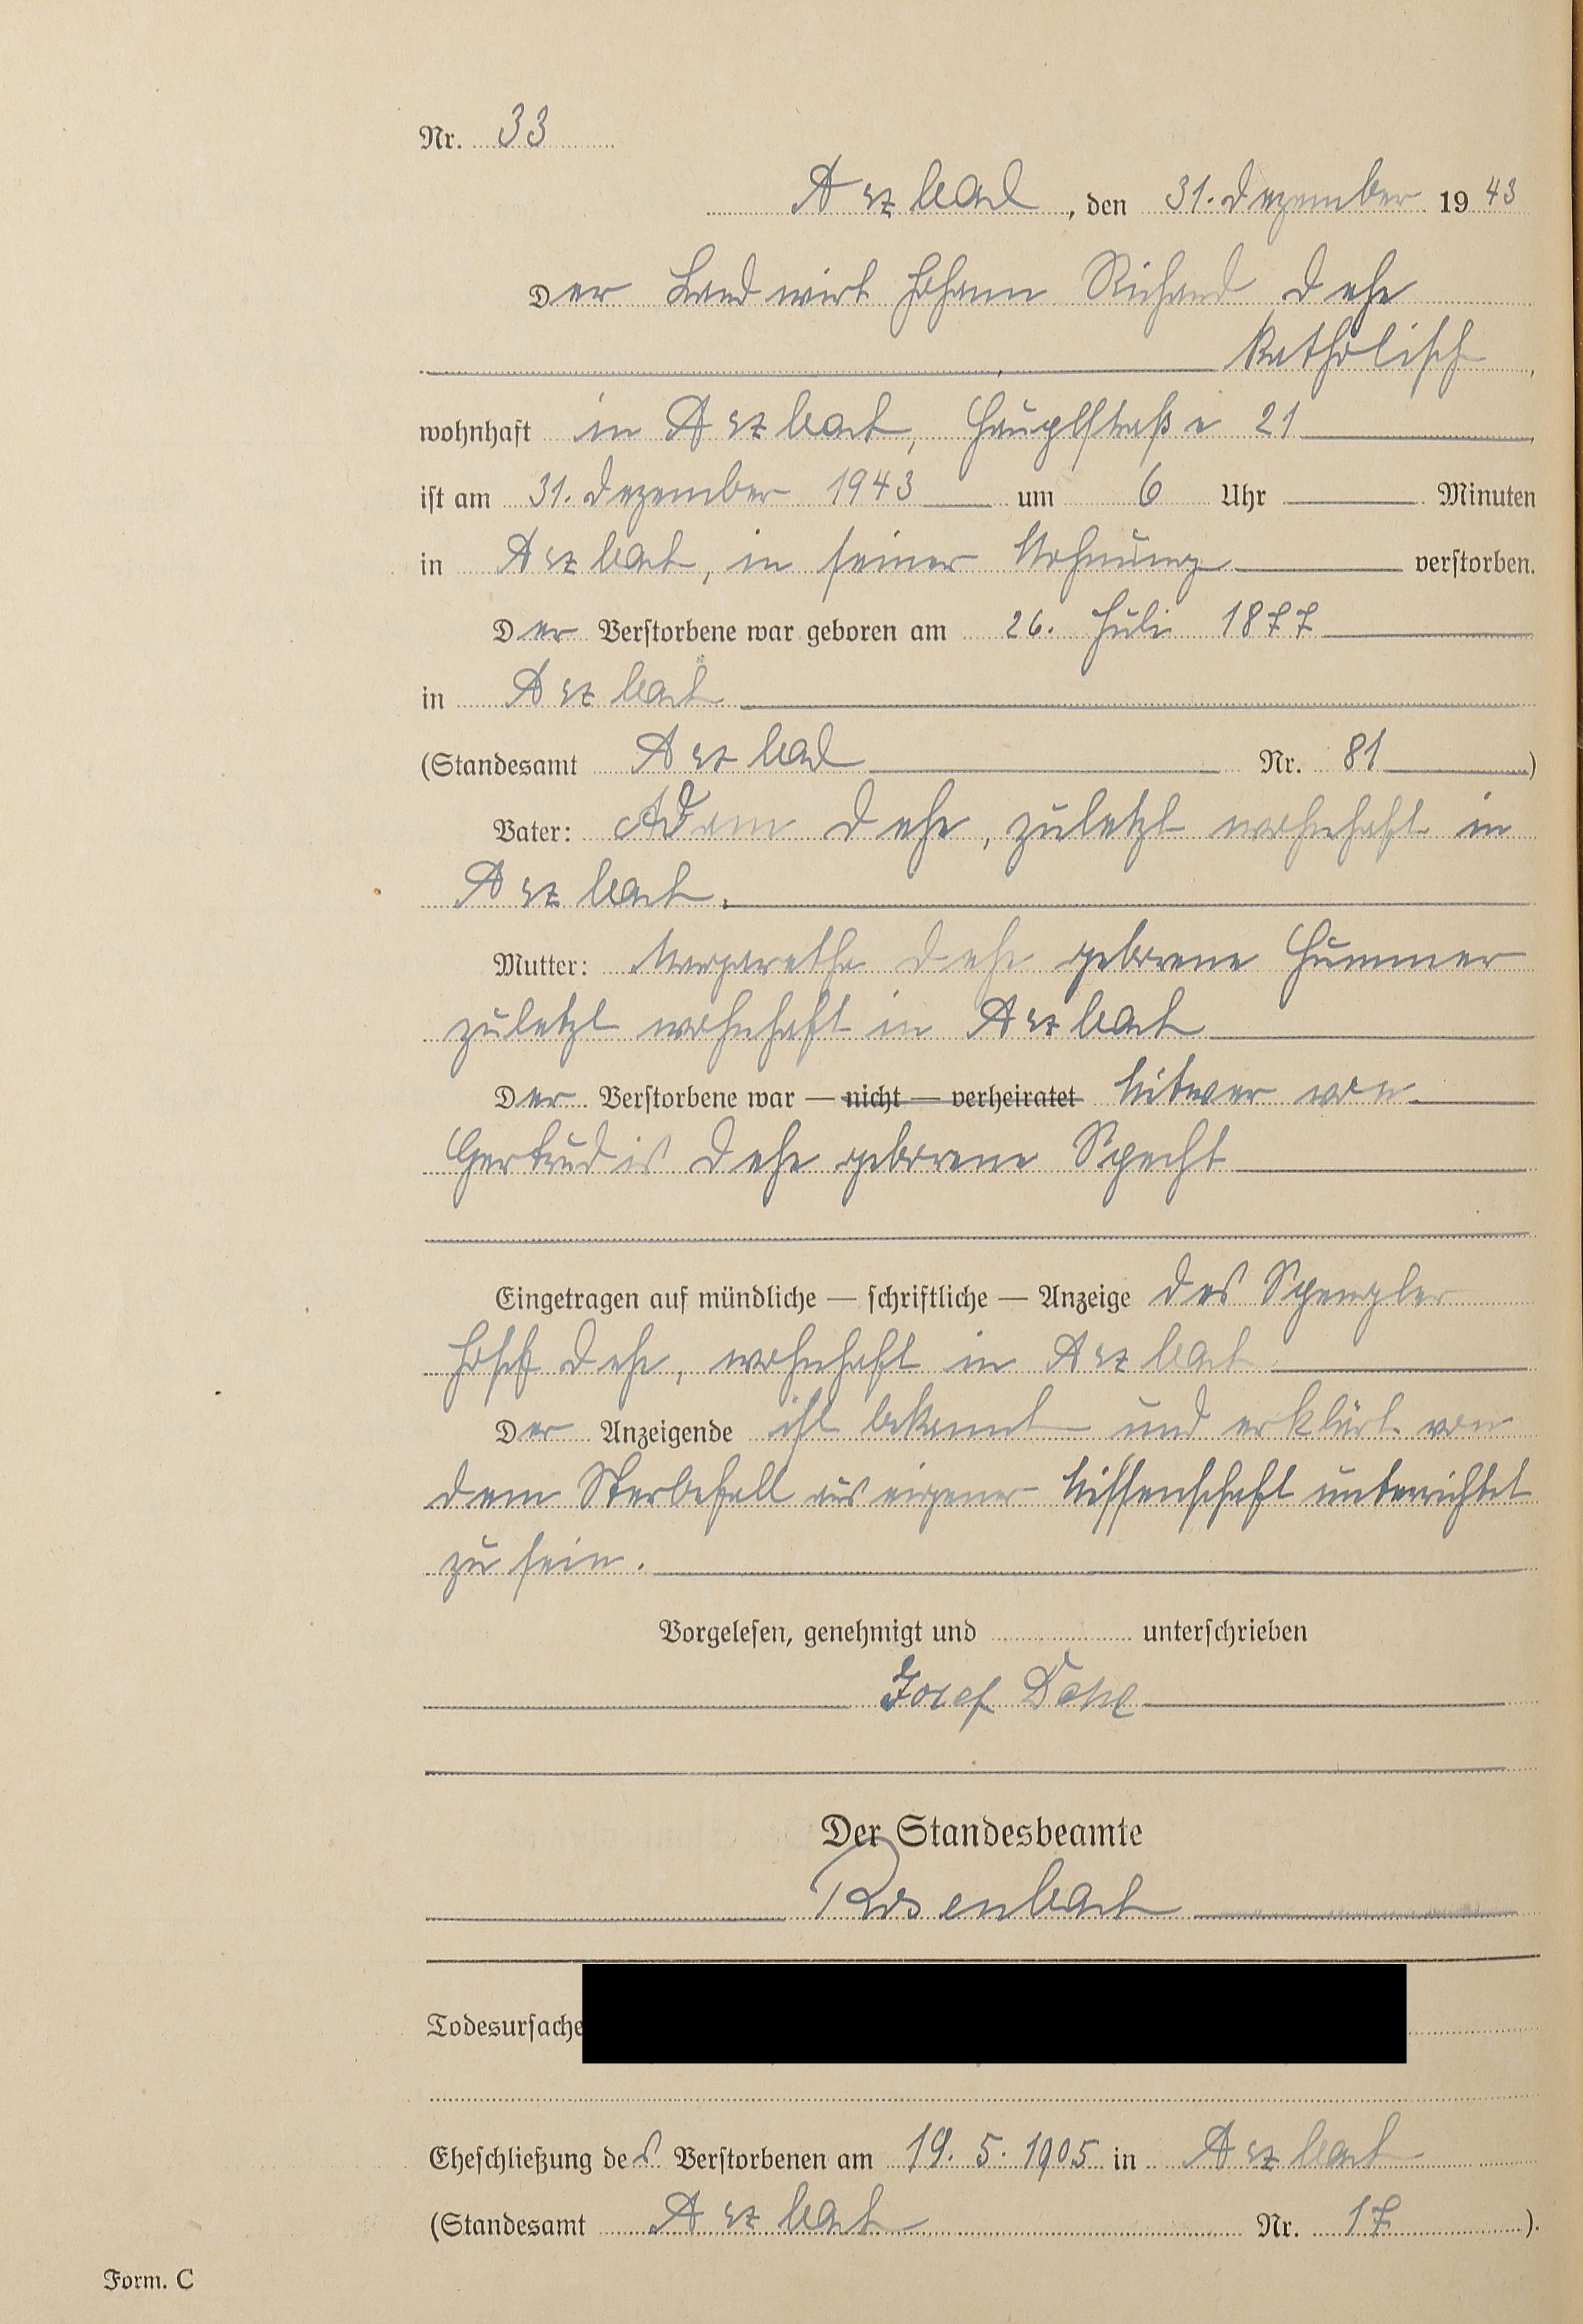 Nr. 33
Arzbach, den 31. Dezember 1943
Der Landwirt Johann Richard Dehe
katholisch,
wohnhaft in Arzbach, Hauptstraße 21
ist am 31. Dezember 1943 um 6 Uhr Minuten
in Arzbach, in seiner Wohnung verstorben.
Der Verstorbene war geboren am 26. Juli 1877
in Arzbach
(Standesamt Arzbach Nr. 81)
Vater: Adam Dehe, zuletzt wohnhaft in
Arzbach.
Mutter: Margaretha Dehe geborene Hummer
zuletzt wohnhaft in Arzbach
Der Verstorbene war — nicht — verheiratet Witwer von
Gertrudis Dehe geborene Specht
Eingetragen auf mündliche — schriftliche — Anzeige des Spengler
Josef Dehe, wohnhaft in Arzbach
Der Anzeigende ist bekannt und erklärt von
dem Sterbefall aus eigener Wissenschaft unterrichtet
zu sein.
Vorgelesen, genehmigt und unterschrieben
Josef Dehe
Der Standesbeamte
Rosenbach
Todesursache
Eheschließung des Verstorbenen am 19. 5. 1905 in Arzbach
(Standesamt Arzbach Nr. 17).
Form. C